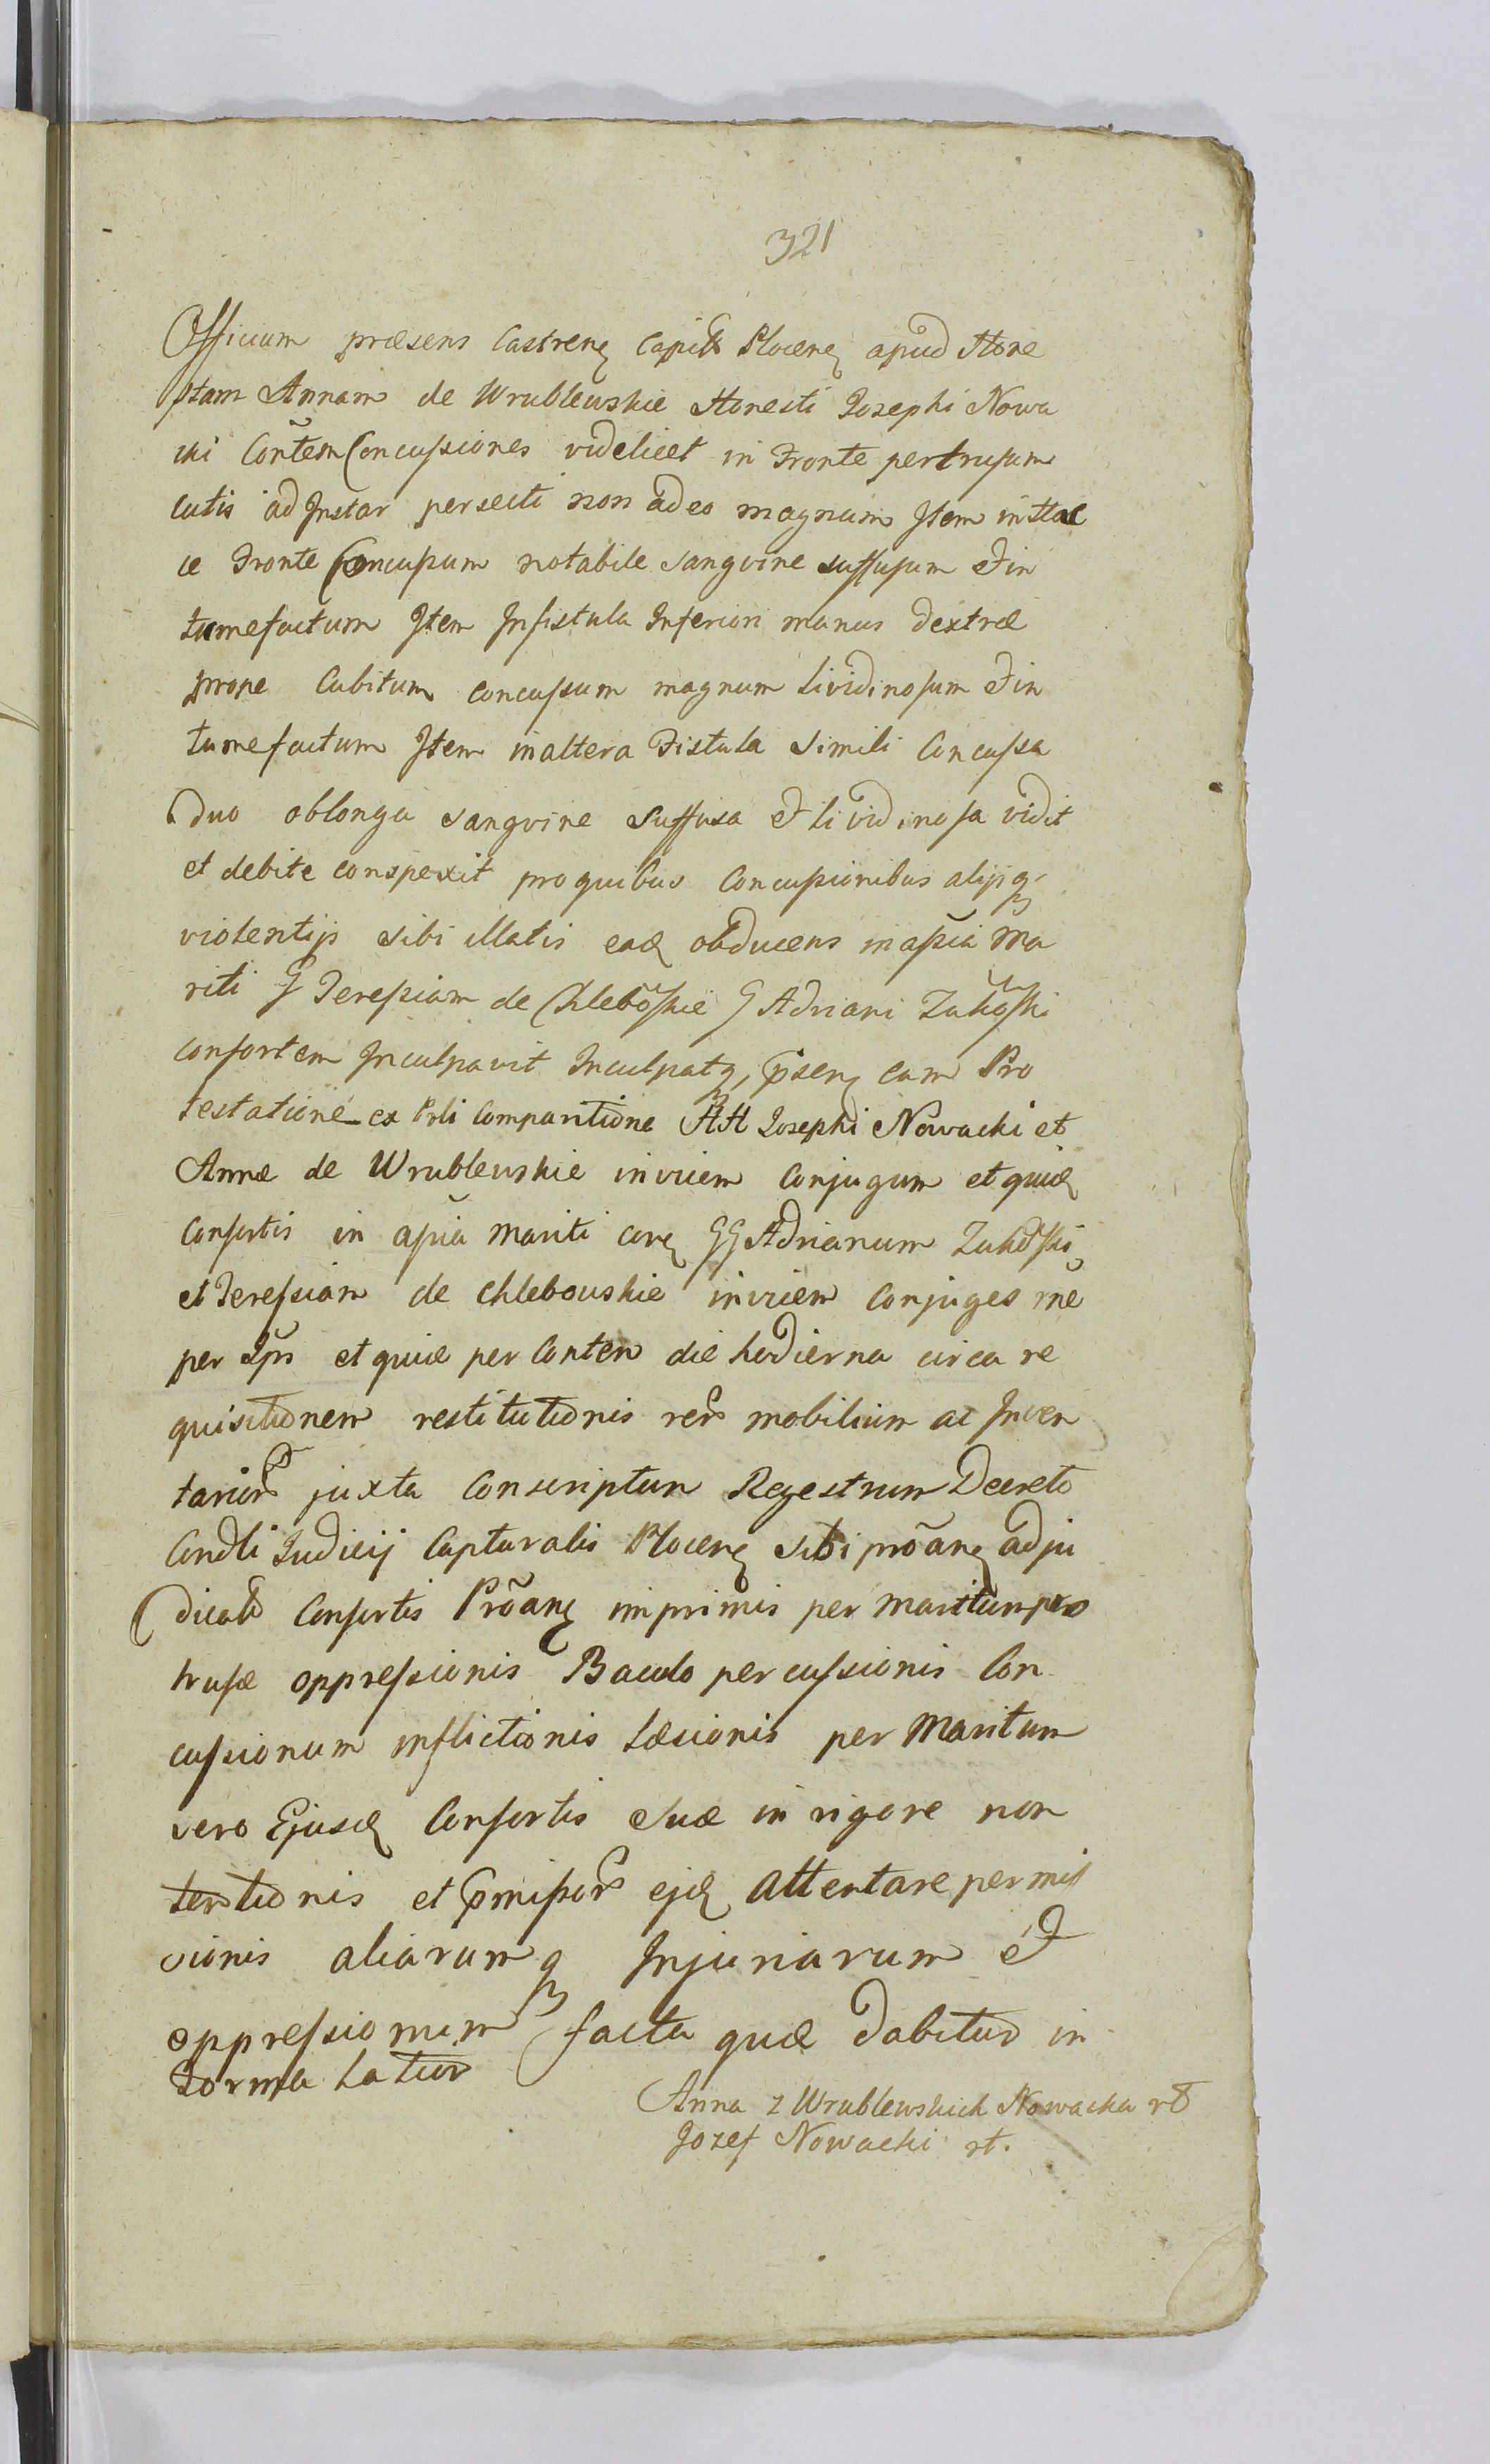 321
Officium præsens Castrenẽ Capitle Plocenẽ apud Hone
stam Annam de Wrublewskie Honesti Josephi Nowa
cki Contẽm Concussiones videlicet in Fronte pertrusum
cutis ad Instar persecti non adeo magnum Item in Hac
ce Fronte Concussum notabile sangvine suffusum et in
tumefactum Item In fistula Inferiori manus dextræ
prope Cubitum concussum magnum lividinosum et in
tumefactum Item in altera Fistula simili Concussa
duo oblonga sangvine suffusa et lividinosa vidit
et debite conspexit pro quibus Concussionibus alijsq
violentijs sibi illatis ead obducens in assĩa Ma
riti G Teressiam de Chlebõskie G Adriani Zukõski
consortem Inculpavit Inculpatq, p̃senẽ eam Pro
testatione ex Prli Comparitione HH Josephi Nowacki et
Annæ de Wrublewskie invicem Conjugum et quid
Consortis in assĩa Mariti corẽ GG Adrianum Zukõski
et Teressiam de Chlebowskie invicem Conjuges mẽ
per Ips et quid per Conten die hodierna circa re
quisitionem restitutionis rer mobilium ac Inven
tarior juxta Conscriptum Regestrum Decreto
Condli Judicij Capturalis Plocenẽ sibi prõanẽ adju
dicat Consortis Prõanẽ imprimis per Maritum pro
trusæ oppressionis Baculo percussionis Con
cussionum inflictionis Læsionis per Maritum
vero Ejusd Consortis suæ in rigore non
tentionis et p̃missor ejd attentare permis
sionis aliarumq Injuriarum et
oppressionum facta quæ dabitur in
Forma Latior
Anna z Wrublewskich Nowacka rt
Jozef Nowacki rt.